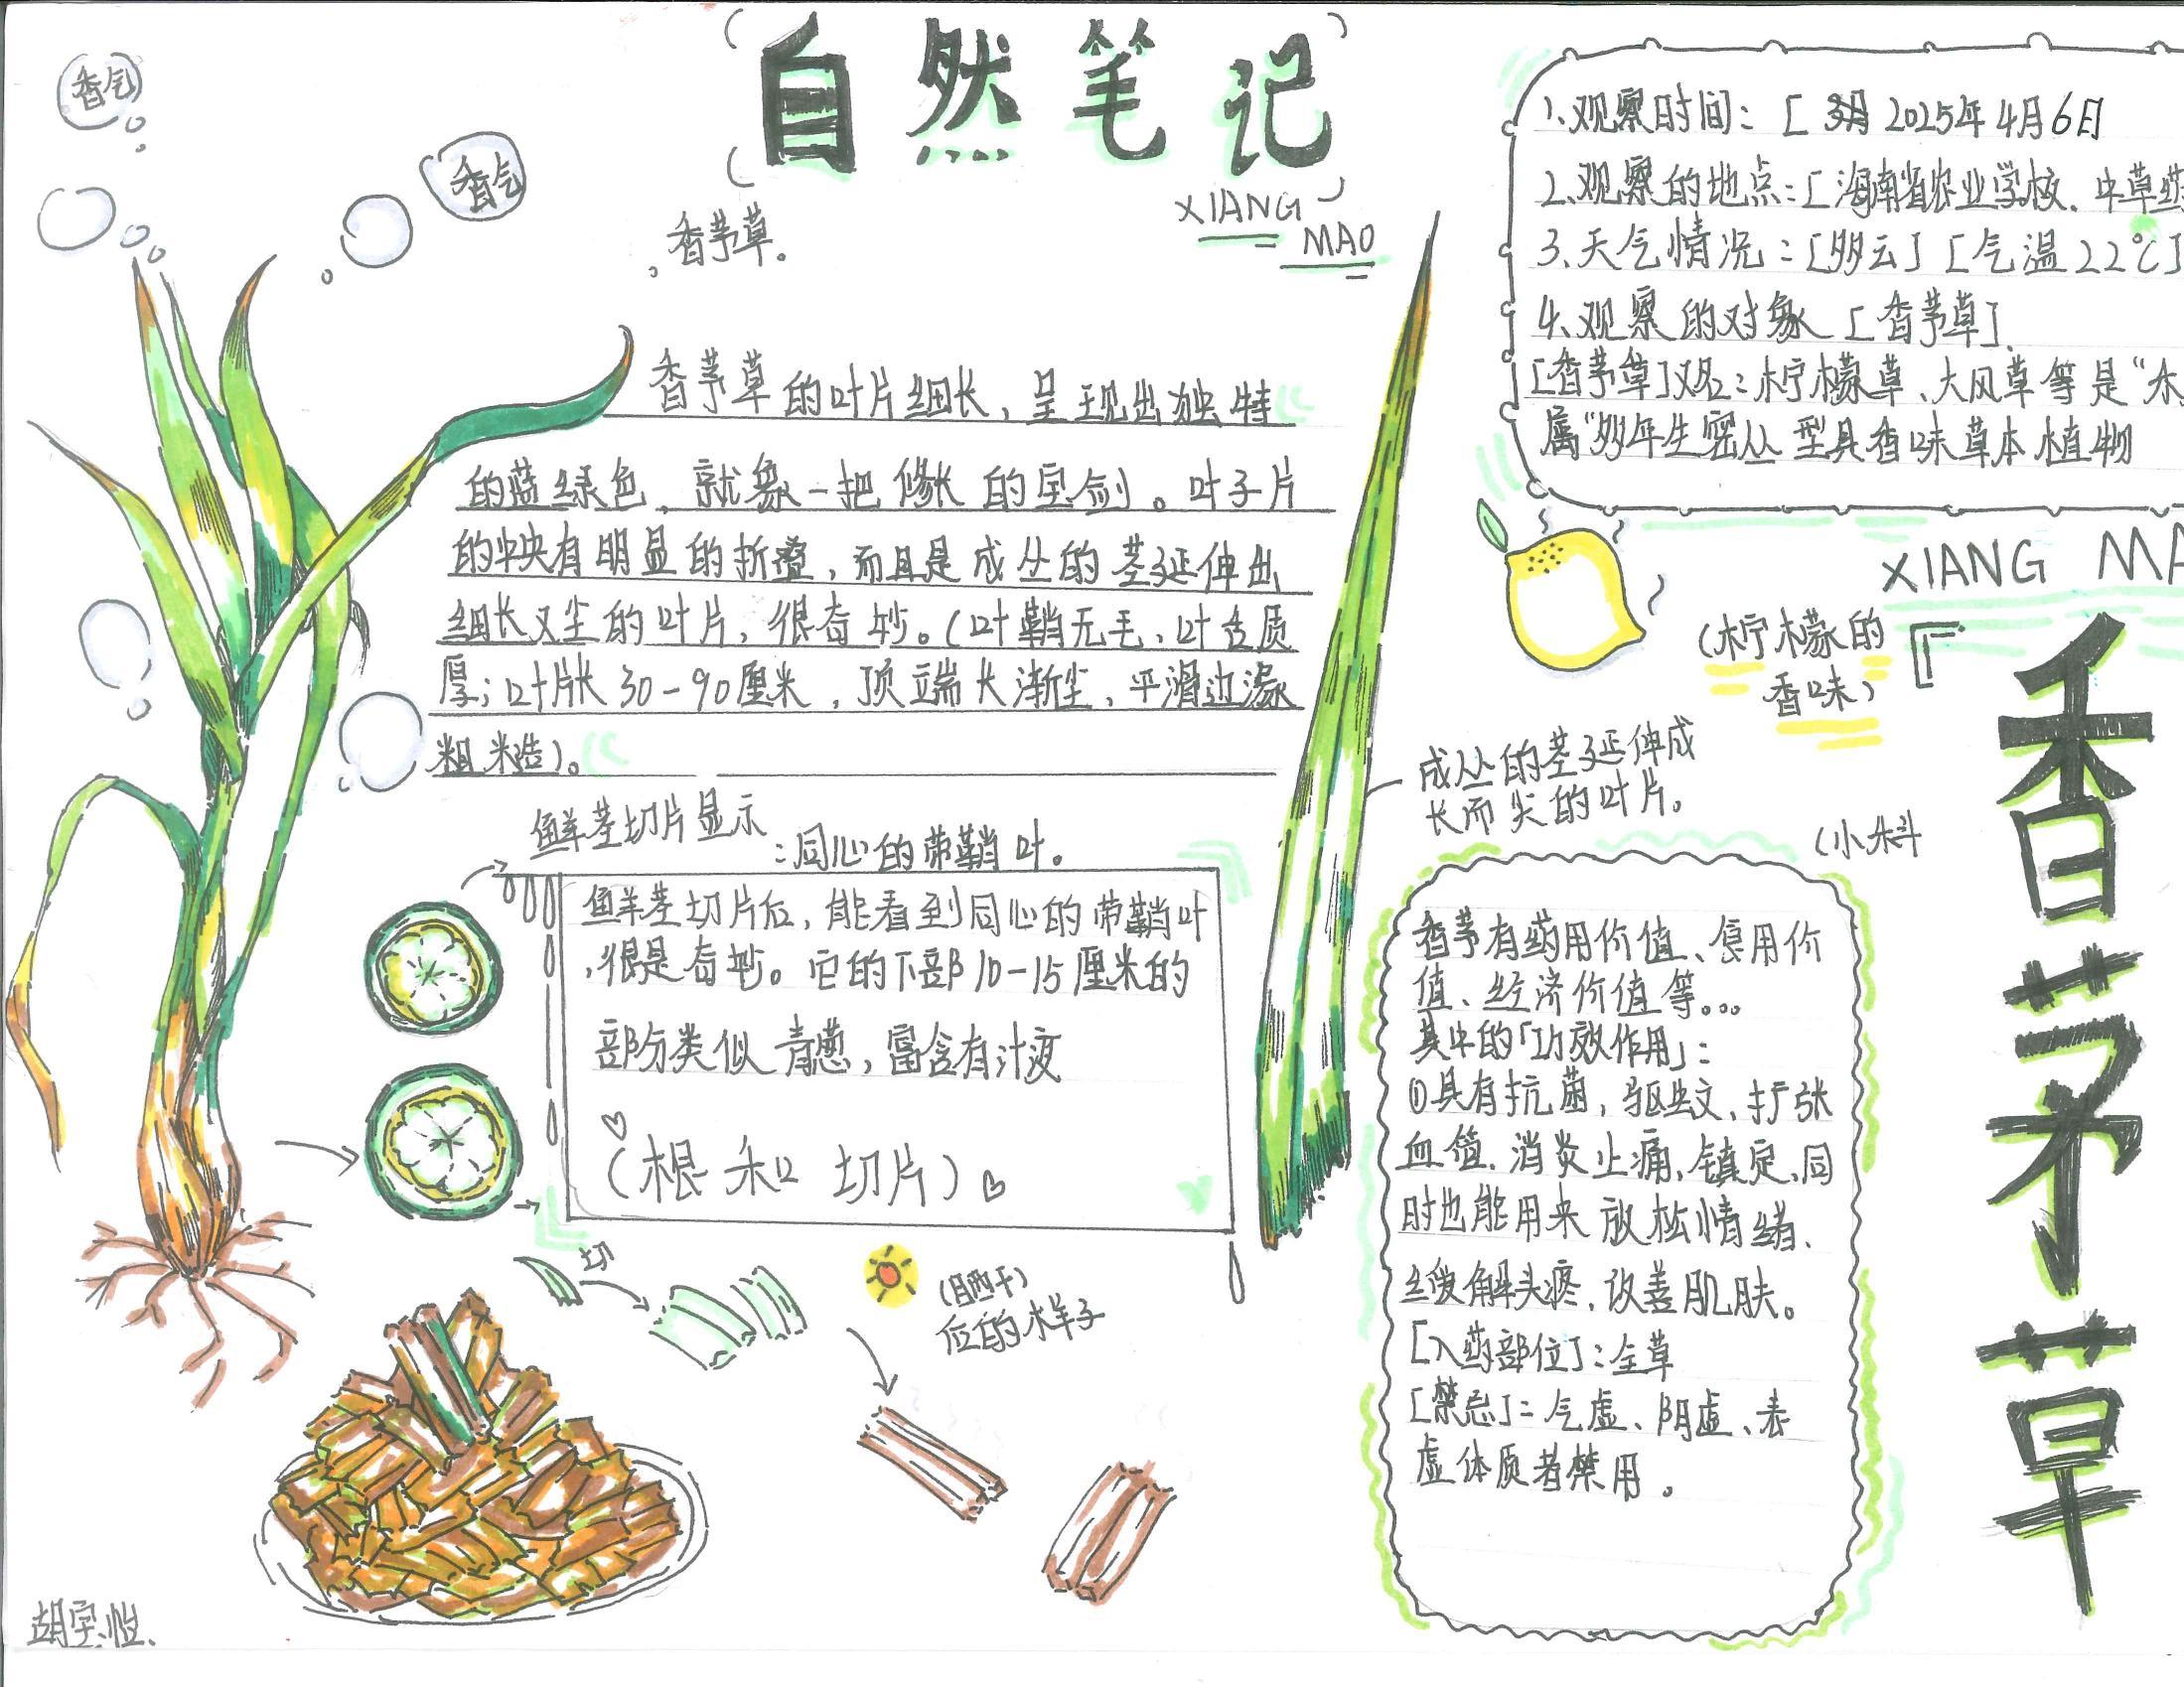 自然笔记
XIANG
MAO
香茅草。
香气
香气
香茅草的叶片细长，呈现出独特
的蓝绿色，就象一把修长的宝剑。叶子片
的中央有明显的折叠，而且是成丛的茎延伸出
细长又尘的叶片，很奇妙。（叶鞘无毛，叶舌质
厚；叶片长30-90厘米，顶端长渐尘，平滑边濠
粗糙）。
鲜茎切片显示
：同心的带鞘叶。
鲜茎切片后，能看到同心的带鞘叶
，很是奇妙。它的下部10-15厘米的
部分类似青葱，富含有汁液
（根和切片）
切
（晒干）
后的样子
胡宇
1、观察时间：[ 2025年4月6日
2、观察的地点：[海南省农业学校、中草药
3、天气情况：[多云] [气温22℃]
4、观察的对象 [香茅草]
[香茅草]又名：柠檬草、大风草等是“禾
属”多年生密丛型具香味草本植物
XIANG MA
（柠檬的
香味）
成丛的茎延伸成
长而尖的叶片。
（小斜
『香茅草
香茅有药用价值、食用价
值、经济价值等。。。
其中的「功效作用」：
①具有抗菌，驱蚊、扩张
血管、消炎止痛、镇定、同
时也能用来放松情绪、
缓解头疼、改善肌肤。
[入药部位]：全草
[禁忌]：气虚、阴虚、表
虚体质者禁用。